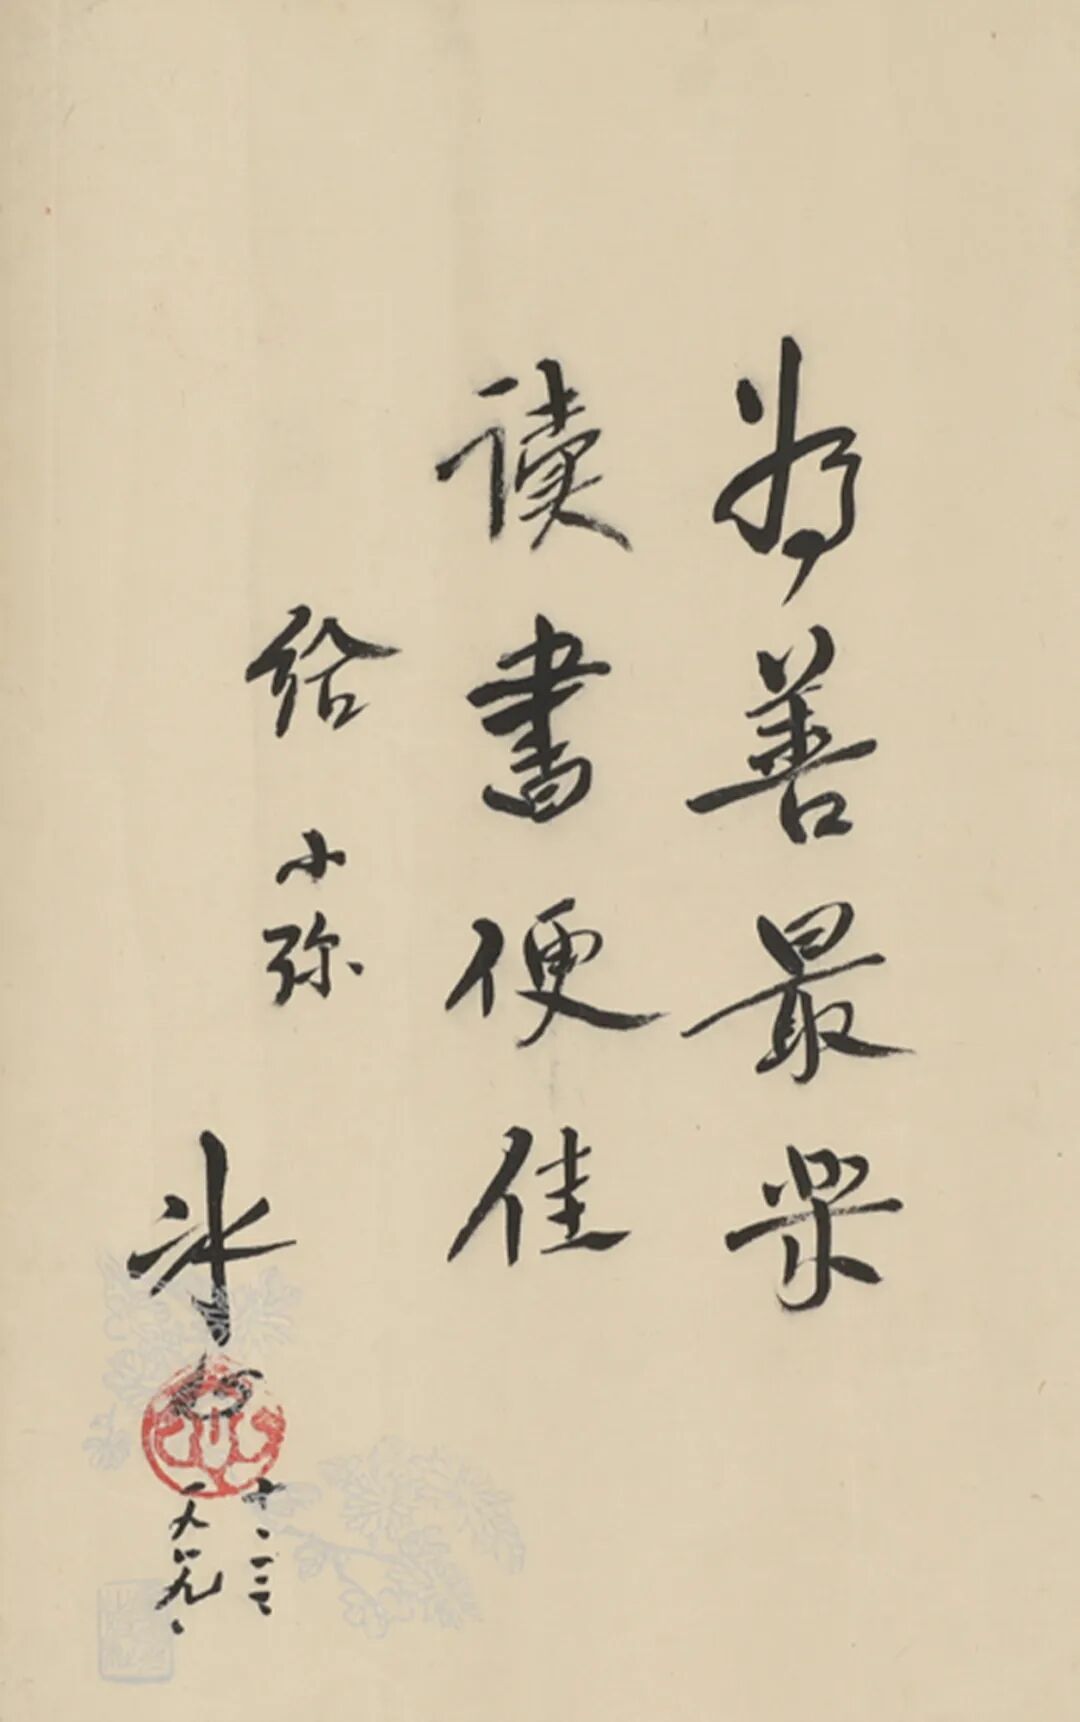 为善最樂
读書便佳
给 小弥
冰心
一九八九、
十、